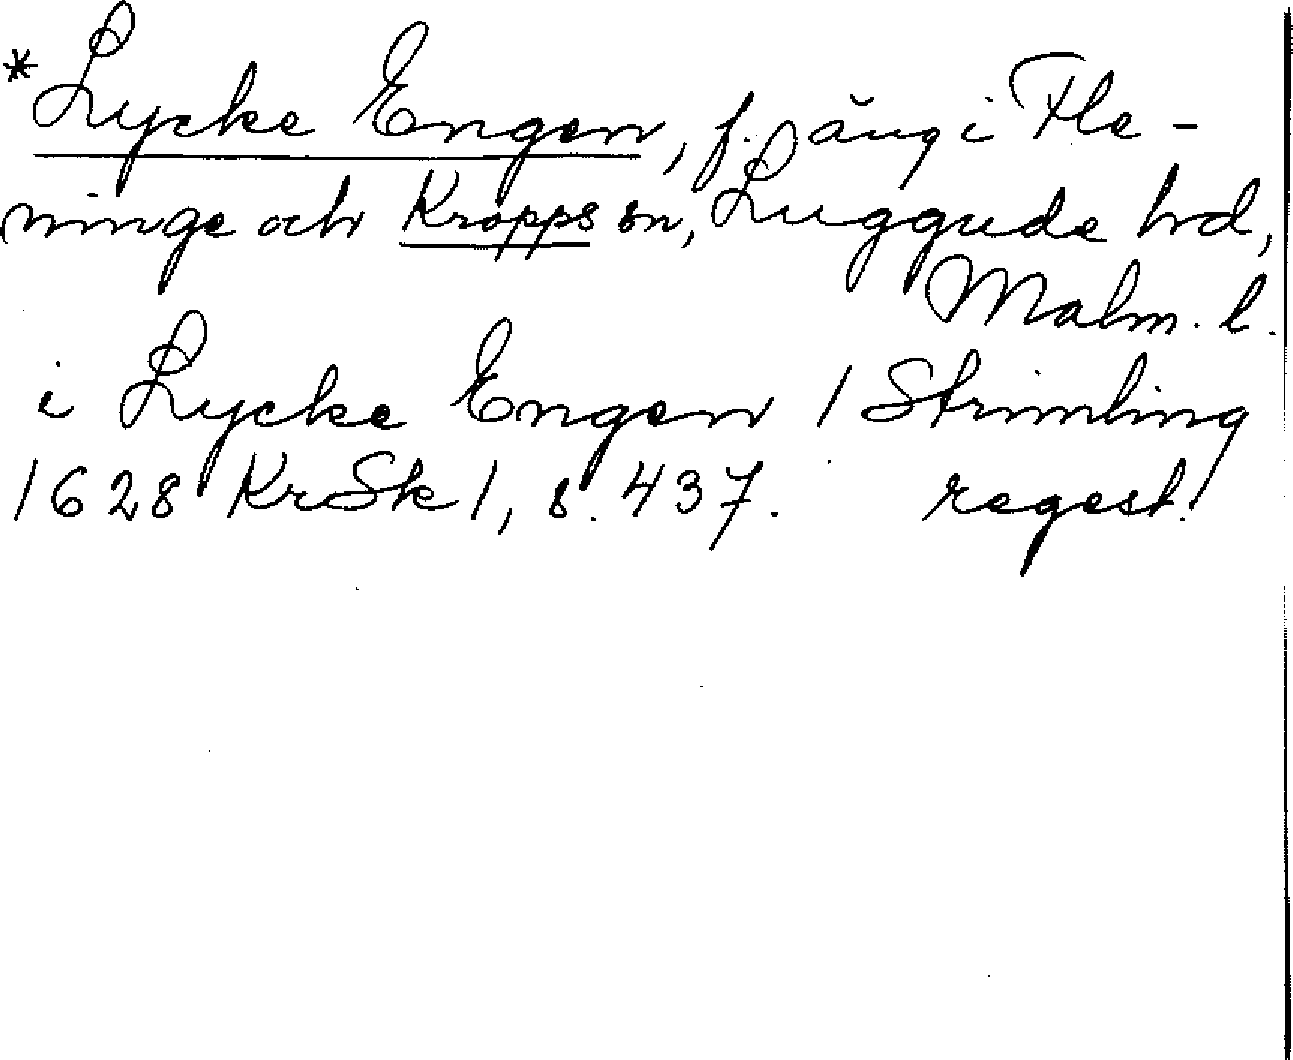 *Lycke Engen, f. äng i Fle-
ninge och Kropps sn, Luggude hd,
Malm. l.
i Lycke Engen / Strimling
1628 KrSk 1, s. 437. regest.